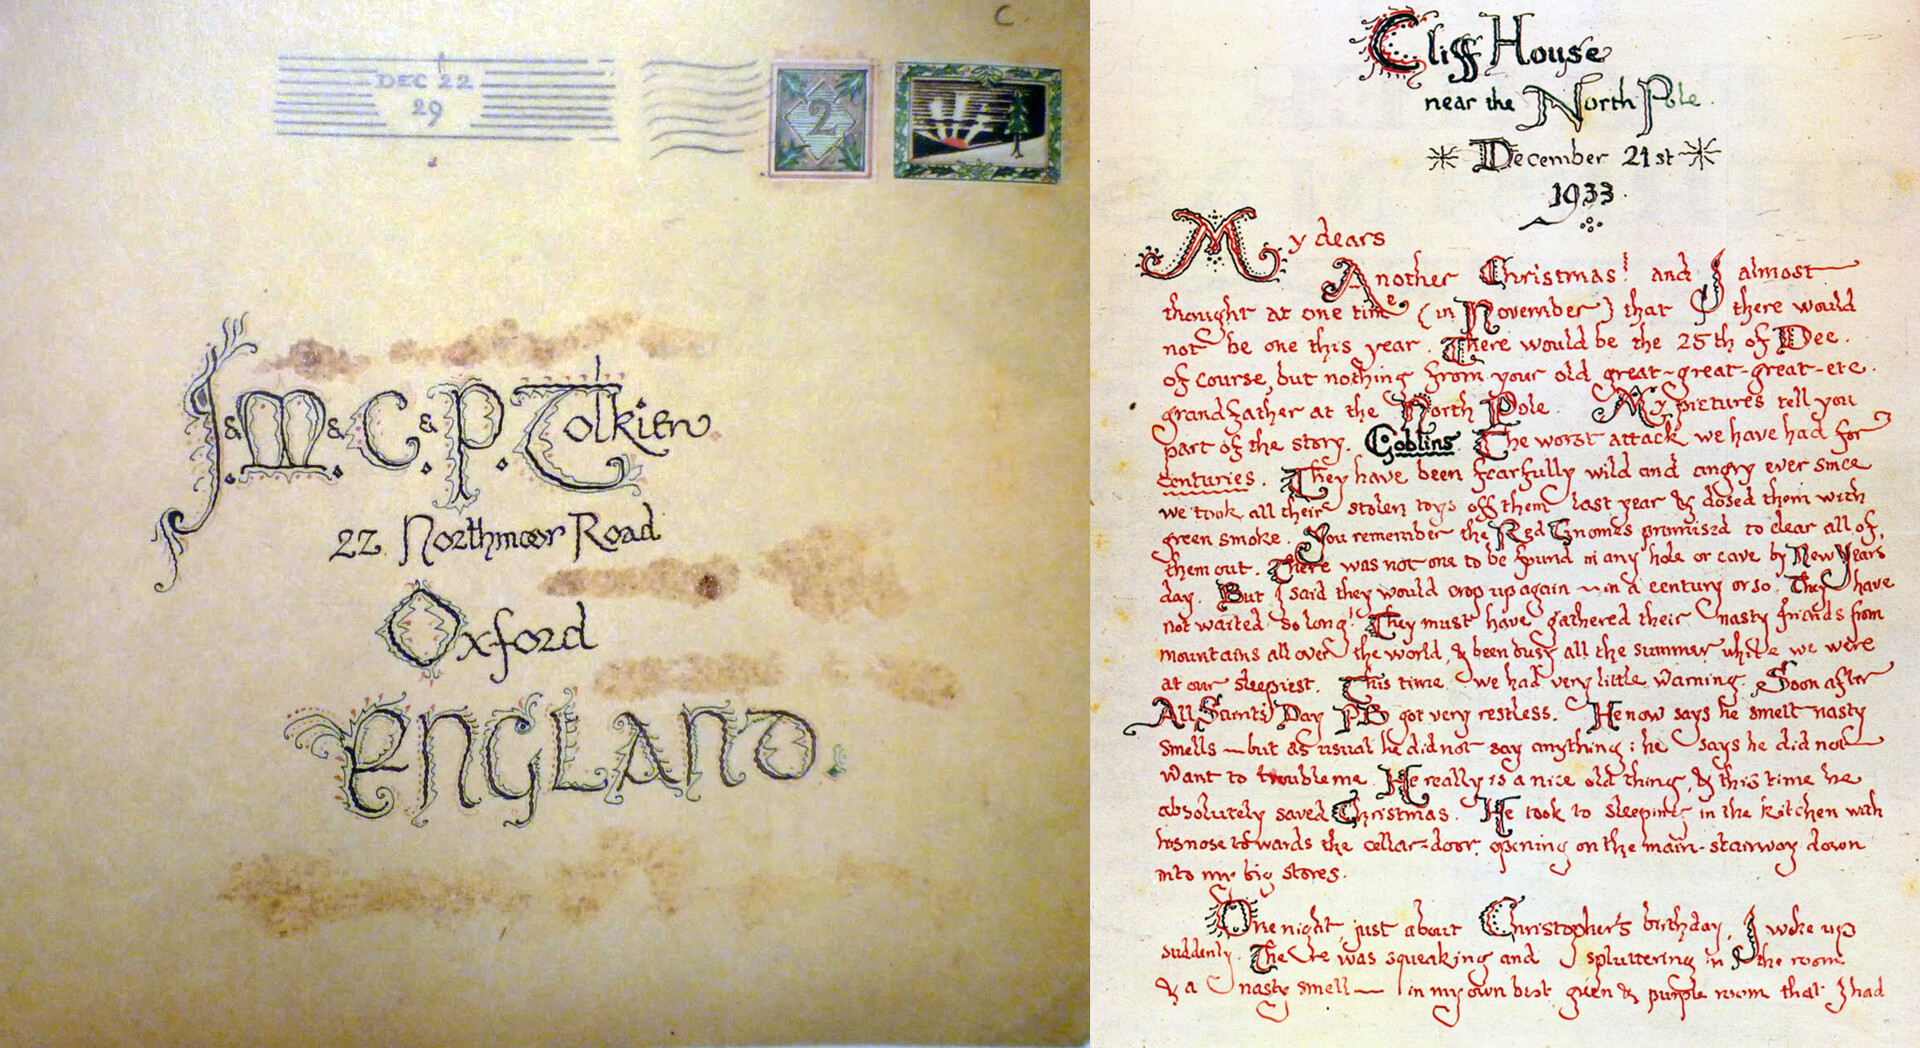 C.
DEC 22
29
2
J. & M. & C. & P. Tolkien
22 Northmoor Road
Oxford
ENGLAND.
Cliff House
near the North Pole.
December 21st
1933.
My dears
Another Christmas! and I almost
thought at one time (in November) that there would
not be one this year. There would be the 25th of Dec.
of course, but nothing from your old great-great-great-etc.
grandfather at the North Pole. My pictures tell you
part of the story. Goblins. The worst attack we have had for
centuries. They have been fearfully wild and angry ever since
we took all their stolen toys off them last year & dosed them with
green smoke. You remember the Red Gnomes promised to clear all of
them out. There was not one to be found in any hole or cave by New Years
day. But I said they would crop up again — in a century or so. They have
not waited so long! They must have gathered their nasty friends from
mountains all over the world, & been busy all the summer while we were
at our sleepiest. This time we had very little warning. Soon after
All Saints' Day PB got very restless. He now says he smelt nasty
smells — but as usual he did not say anything: he says he did not
want to trouble me. He really is a nice old thing, & this time he
absolutely saved Christmas. He took to sleeping in the kitchen with
his nose towards the cellar-door, opening on the main-stairway down
into my big stores.
One night, just about Christopher's birthday, I woke up
suddenly. There was squeaking and spluttering in the room
& a nasty smell — in my own best green & purple room that I had